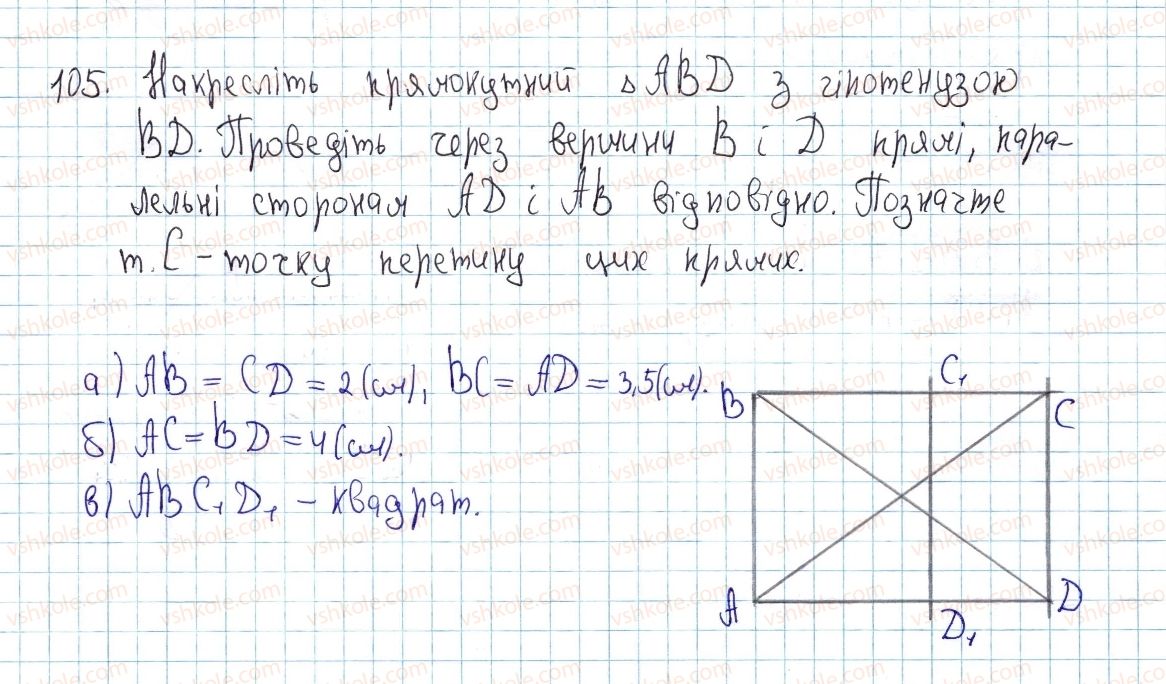 105. Накресліть прямокутний △ABD з гіпотенузою
BD. Проведіть через вершини B і D прямі, пара-
лельні сторонам AD і AB відповідно. Позначте
т. C – точку перетину цих прямих.
а) AB = CD = 2 (см), BC = AD = 3,5 (см).
б) AC = BD = 4 (см).
в) ABC₁D₁ – квадрат.
B C₁ C
A D₁ D
vshkole.com